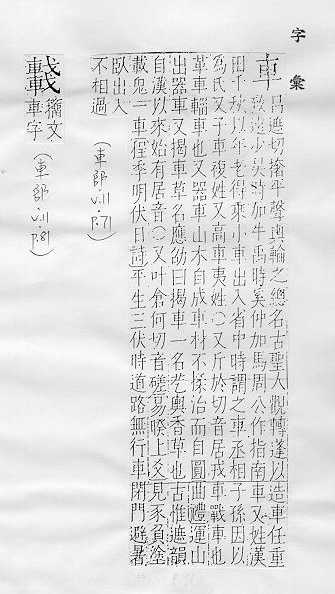 字彙
車
昌遮切撦平聲輿輪之總名古聖人觀轉蓬以造車任重
致遠少昊時加牛禹時奚仲加馬周公作指南車又姓漢
田千秋以年老得乘小車出入省中時謂之車丞相子孫因以
為氏又子車複姓又高車夷姓○又斤於切音居戎車戰車也
革車輜車也又器車山木自成車材不揉治而自圓曲禮運山
出器車又揭車草名應劭曰揭車一名芞輿香草也古惟遮韻
自漢以來始有居音○又叶倉何切音磋易睽上爻見豕負塗
載鬼一車程季明伏日詩平生三伏時道路無行車閉門避暑
臥出入
不相過
(車部.v.11 P.71)
籀文
車字
(車部.v.11 P.81)